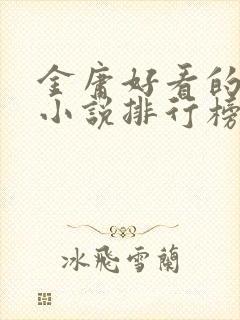 金庸好看的
小说排行榜
冰飛雪蘭